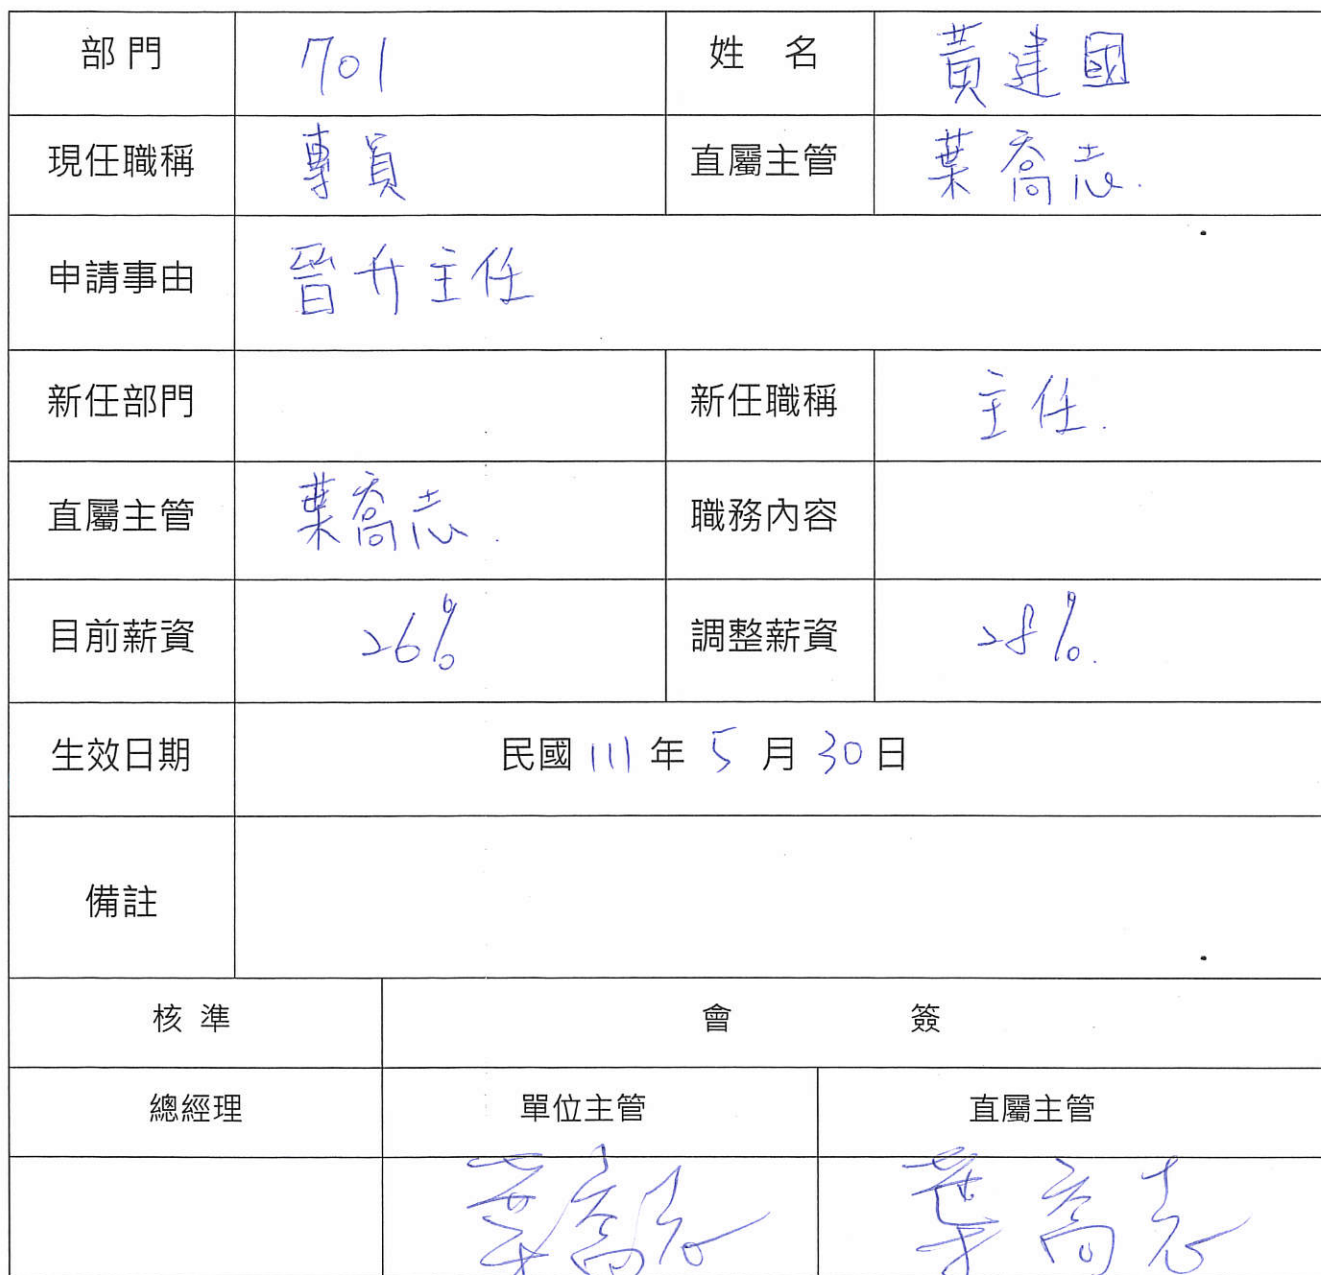 部門 701 姓 名 黃建國
現任職稱 專員 直屬主管 葉喬志.
申請事由 晉升主任
新任部門 新任職稱 主任.
直屬主管 葉喬志. 職務內容
目前薪資 26% 調整薪資 28%.
生效日期 民國 111 年 5 月 30 日
備註
核 準 會 簽
總經理 單位主管 直屬主管
葉喬志 葉喬志